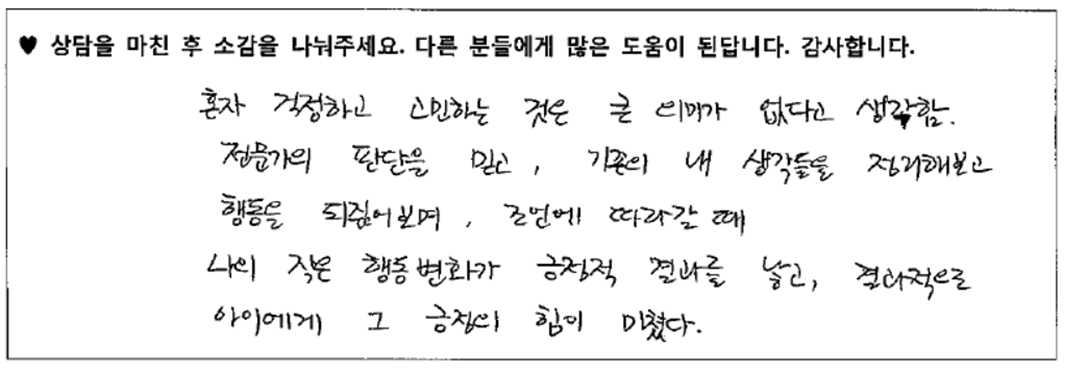 ♥ 상담을 마친 후 소감을 나눠주세요. 다른 분들에게 많은 도움이 된답니다. 감사합니다.
혼자 걱정하고 고민하는 것은 큰 의미가 없다고 생각함.
전문가의 판단을 믿고, 기존의 내 생각들을 정리해보고
행동을 되짚어보며, 조언에 따라갈 때
나의 작은 행동변화가 긍정적 결과를 낳고, 결과적으로
아이에게 그 긍정의 힘이 미쳤다.